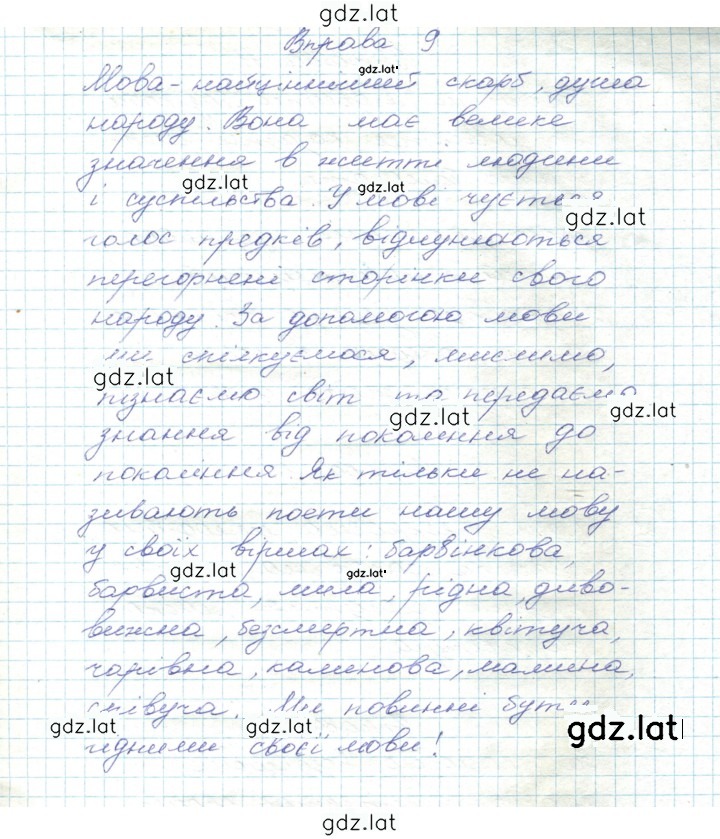 gdz.lat
Вправа 9
gdz.lat
Мова - найцінніший скарб, душа
народу. Вона має велике
значення в житті людини
gdz.lat gdz.lat
і суспільства. У мові чується
gdz.lat
голос предків, відлунюються
перегорнені сторінки свого
народу. За допомогою мови
ми спілкуємося, мислимо,
gdz.lat
пізнаємо світ та передаємо
gdz.lat gdz.lat
знання від покоління до
покоління. Як тільки не на-
зивають поети нашу мову
у своїх віршах: барвінкова,
gdz.lat gdz.lat
барвиста, мила, рідна, диво-
вижна, безсмертна, квітуча,
чарівна, калинова, малинова,
співуча. Ми повинні бути
gdz.lat gdz.lat gdz.lat
гідними своєї мови!
gdz.lat